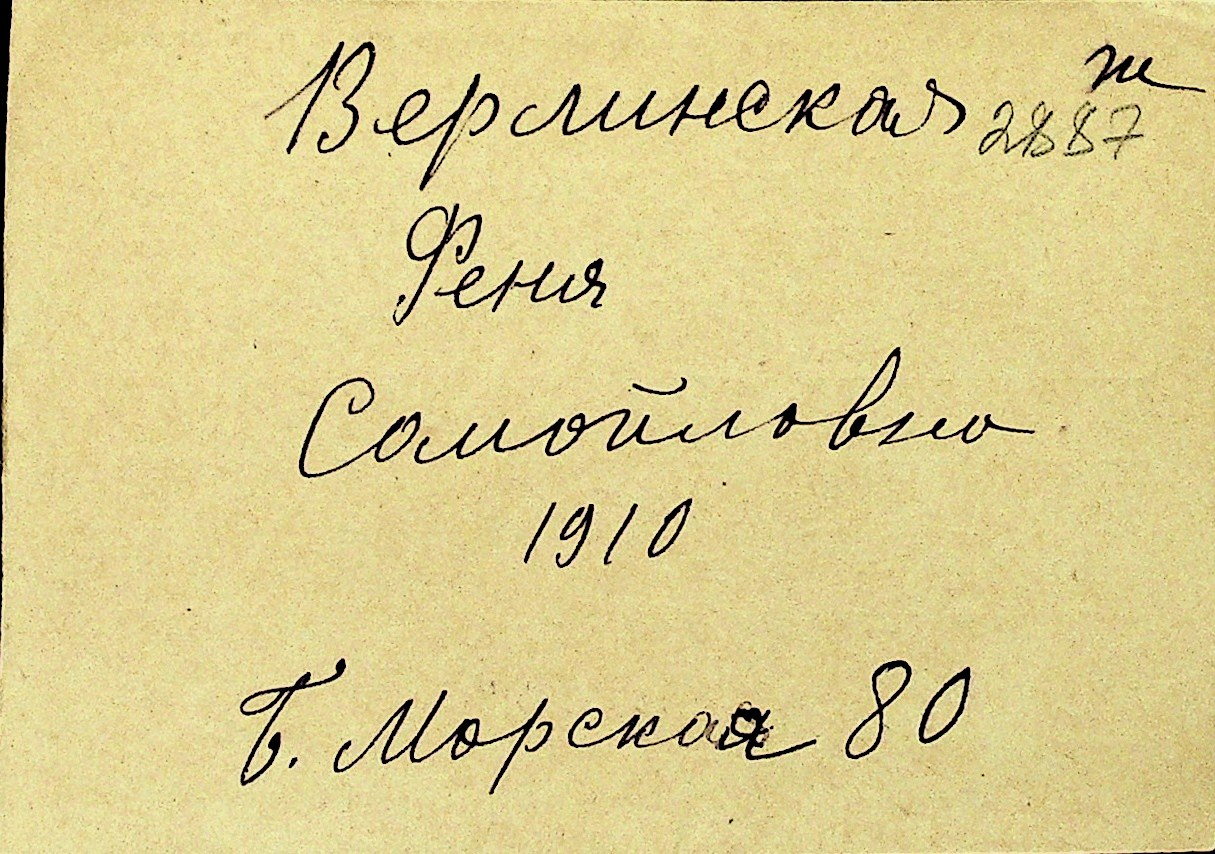 Верлинская ж
2887
Феня
Самойловна
1910
Б. Морская 80